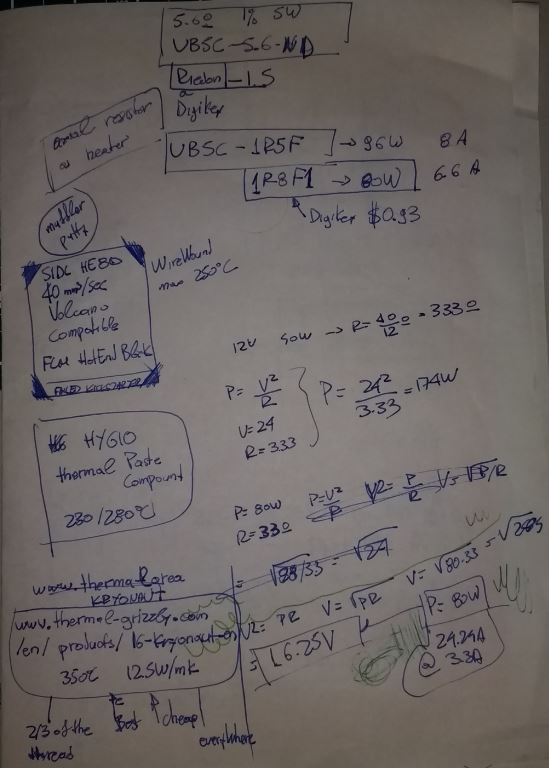 5.6Ω 1% 5W
UBSC-5.6-ND
Riedon -1.5
Digikey
axial resistor
as heater
UBSC-1R5F → 96W 8A
1R8F1 → 80W 6.6A
Digikey $0.93
muffler
putty
WireWound
max 250°C
40 mm³/sec
Volcano
Compatible
FAILED KICKSTARTER
12V 40W → R = 40/12 = 3.33Ω
P = V²/R
V = 24
R = 3.33
P = 24²/3.33 = 174W
HY610
thermal Paste
Compound
230/280°C
P = 80W
R = 33Ω
P=V²/R V2 = P/R V= √P/R
= √88/33 = √24
www.thermal area
KRYONAUT
www.thermal-grizzly.com
/en/products/16-kryonaut-en
350°C 12.5W/mk
V2 = PR V = √PR V = √80.33
= 16.25V
P = 80W
24.24A
@ 3.3A
2/3 of the
thread
Best
cheap
everywhere